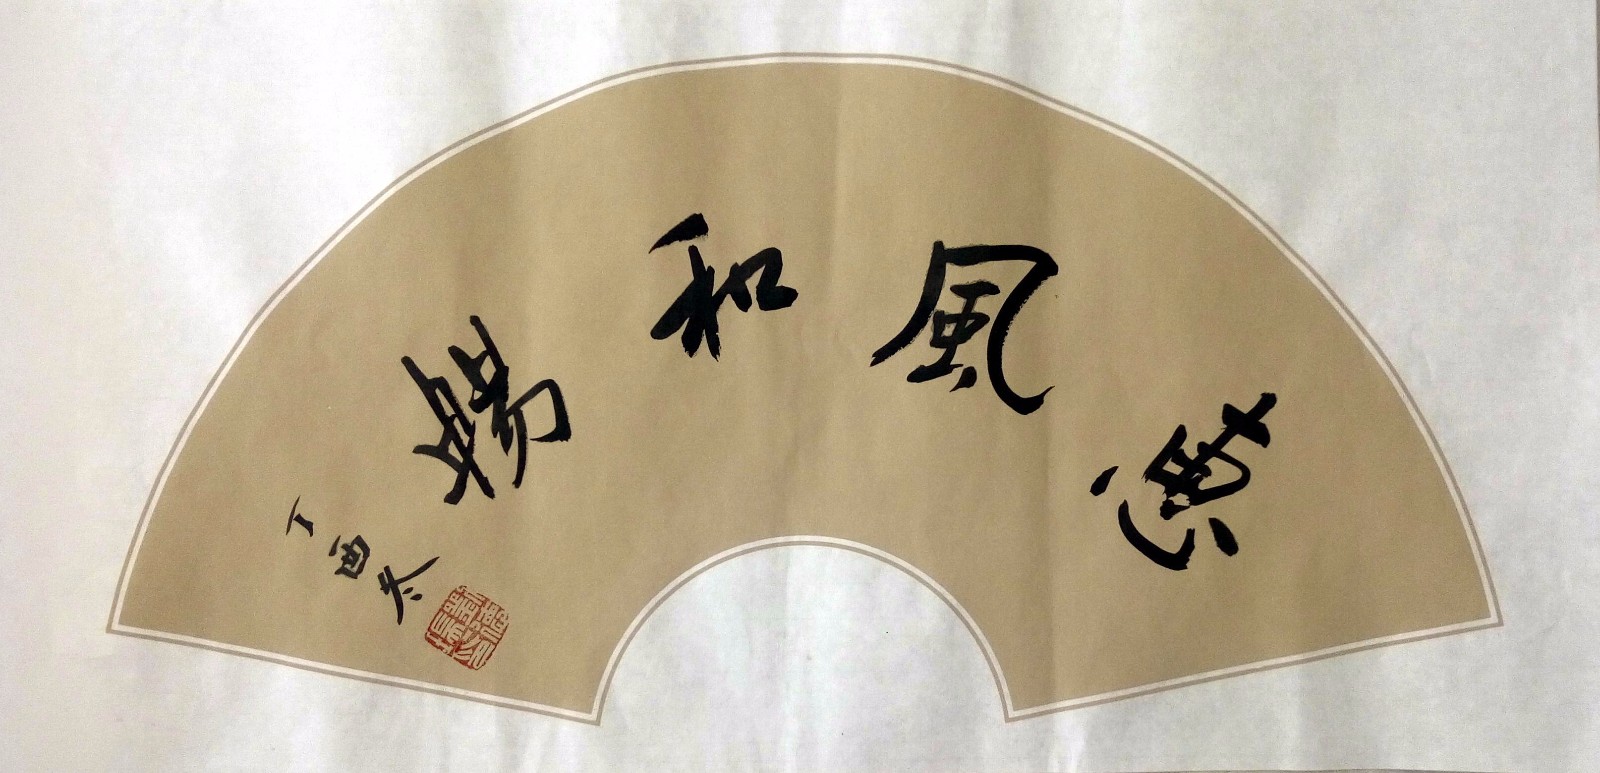 惠風和暢
丁酉冬